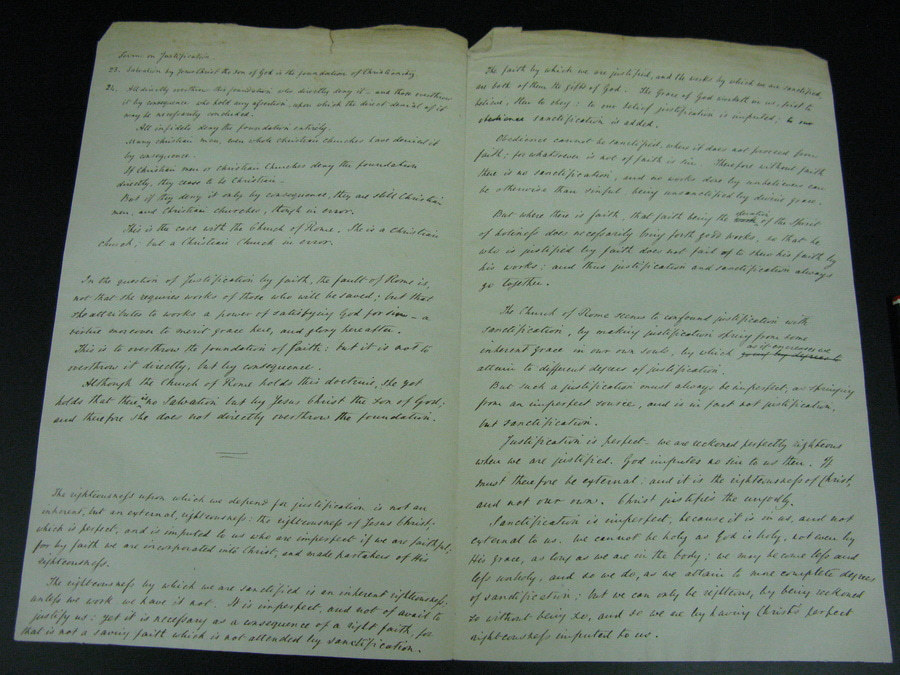 Sermon on Justification.
23. Salvation by Jesus Christ the Son of God is the foundation of Christianity.
24. All directly overthrow this foundation who directly deny it - and those overthrow
it by consequence who hold any assertion, upon which the direct denial of it
may be necessarily concluded.
All infidels deny the foundation entirely.
Many Christian men, even whole Christian Churches have denied it
by consequence.
If Christian men or Christian Churches deny the foundation
directly, they cease to be Christian.
But if they deny it only by consequence, they are still Christian
men, and Christian churches, though in error.
This is the case with the Church of Rome. She is a Christian
church; but a Christian Church in error.
In the question of Justification by faith, the fault of Rome is,
not that she requires works of those who will be saved; but that
she attributes to works a power of satisfying God for sin - a
virtue moreover to merit grace here, and glory hereafter.
This is to overthrow the foundation of faith; but it is not to
overthrow it directly, but by consequence.
Although the Church of Rome holds this doctrine, she yet
holds that there is no Salvation but by Jesus Christ the Son of God;
and therefore she does not directly overthrow the foundation.
The righteousness upon which we depend for justification is not an
inherent, but an external, righteousness: the righteousness of Jesus Christ;
which is perfect, and is imputed to us who are imperfect if we are faithful;
for by faith we are incorporated into Christ, and made partakers of His
righteousness.
The righteousness by which we are sanctified is an inherent righteousness:
unless we work we have it not. It is imperfect, and not of avail to
justify us: yet it is necessary as a consequence of a right faith, for
that is not a saving faith which is not attended by sanctification.
The faith by which we are justified, and the works by which we are sanctified,
are both of them the gifts of God. The grace of God worketh in us, first to
believe, then to obey: to our belief justification is imputed; to our
obedience sanctification is added.
Obedience cannot be sanctified, when it does not proceed from
faith; for whatsoever is not of faith is sin. Therefore without faith
there is no sanctification, and no works done by unbelievers can
be otherwise than sinful, being unsanctified by divine grace.
But where there is faith, that faith being the work of the Spirit
of holiness does necessarily bring forth good works, so that he
who is justified by faith does not fail to shew his faith by
his works: and thus justification and sanctification always
go together.
The Church of Rome seems to confound justification with
sanctification, by making justification spring from some
inherent grace in our own souls, by which
attain to different degrees of justification.
But such a justification must always be imperfect, as springing
from an imperfect source, and is in fact not justification,
but sanctification.
Justification is perfect - we are reckoned perfectly righteous
when we are justified. God imputes no sin to us then. It
must therefore be external: and it is the righteousness of Christ,
and not our own. Christ justifies the ungodly.
Sanctification is imperfect, because it is in us, and not
external to us. We cannot be holy as God is holy, not even by
His grace, as long as we are in the body; we may become less and
less unholy, and so we do, as we attain to more complete degrees
of sanctification; but we can only be righteous, by being reckoned
so without being so, and so we are by having Christ's perfect
righteousness imputed to us.